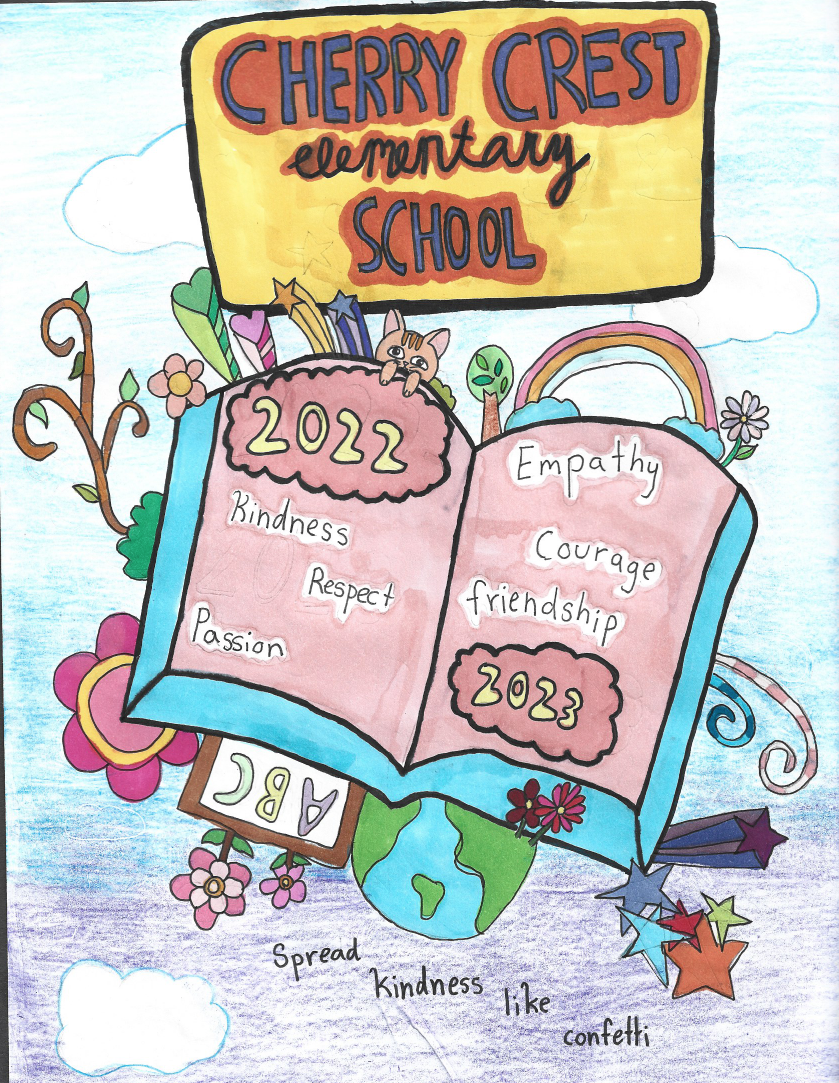 CHERRY CREST
elementary
SCHOOL
2022
Kindness
Respect
Passion
Empathy
Courage
friendship
2023
ABC
Spread
kindness
like
confetti